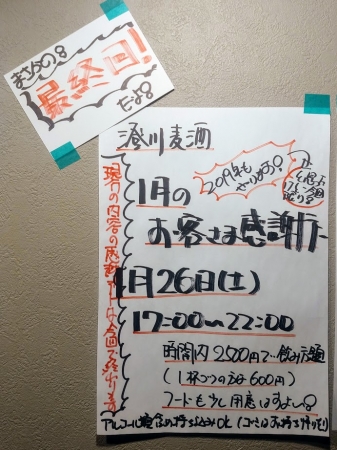 まさかの!!
最終回!
だよ!!
澄川麦酒
2019年も
やります!
1月の
お客さま感謝デー
1月26日(土)
17:00〜22:00
時間内2500円で…飲み放題
(1杯づつの方は600円)
フードも少し用意しますよー!!
アルコール以外の持ち込みOK(ゴミはお持ち帰り)
現行の内容の感謝デーは今回で終わります